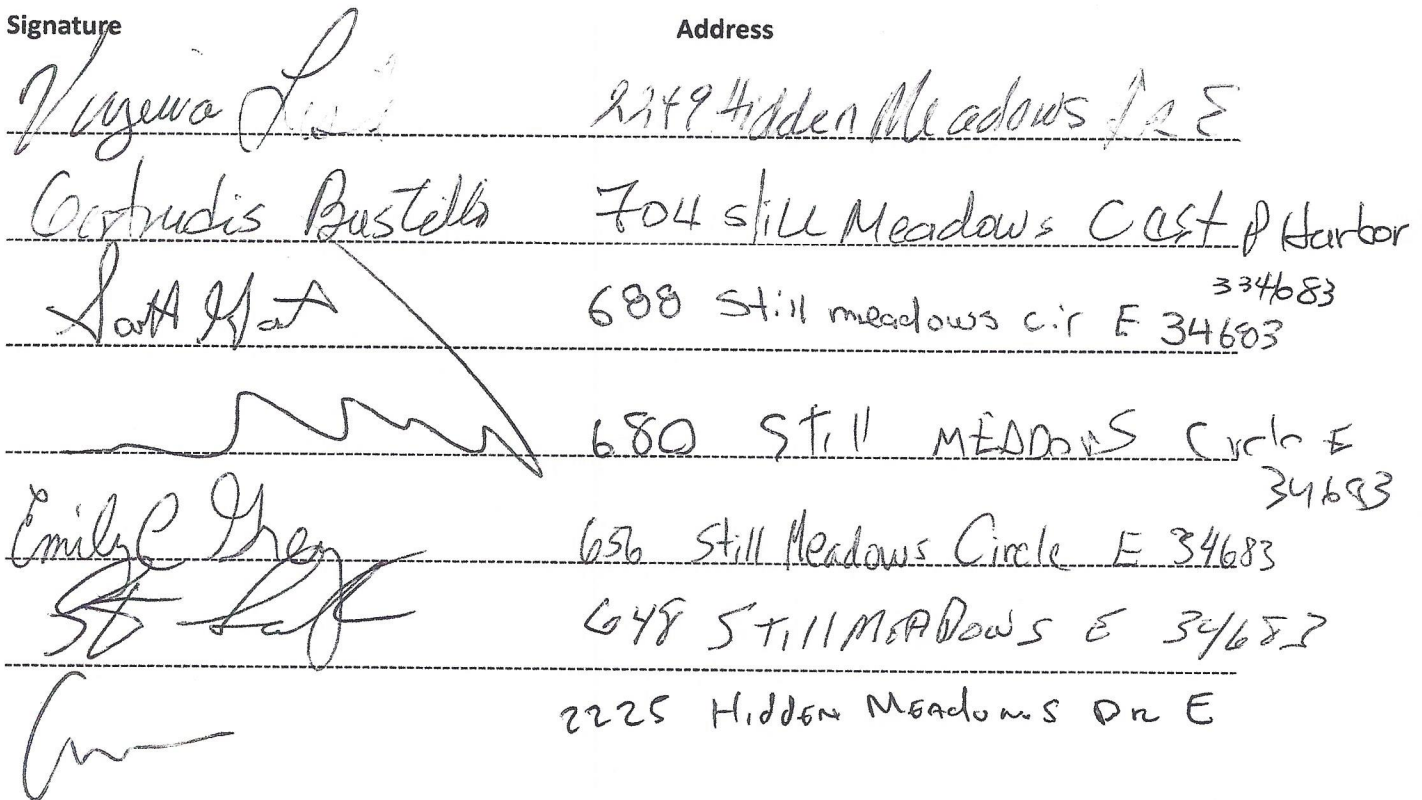 Signature Address
2249 Hidden Meadows Dr E
Gertrudis Bustillo 704 still Meadows C East P Harbor
334683
688 Still meadows cir E 34683
680 Still MEADOWS Circle E
34683
Emily C Grey 656 Still Meadows Circle E 34683
648 STILL MEADOWS E 34683
2225 Hidden Meadows DR E